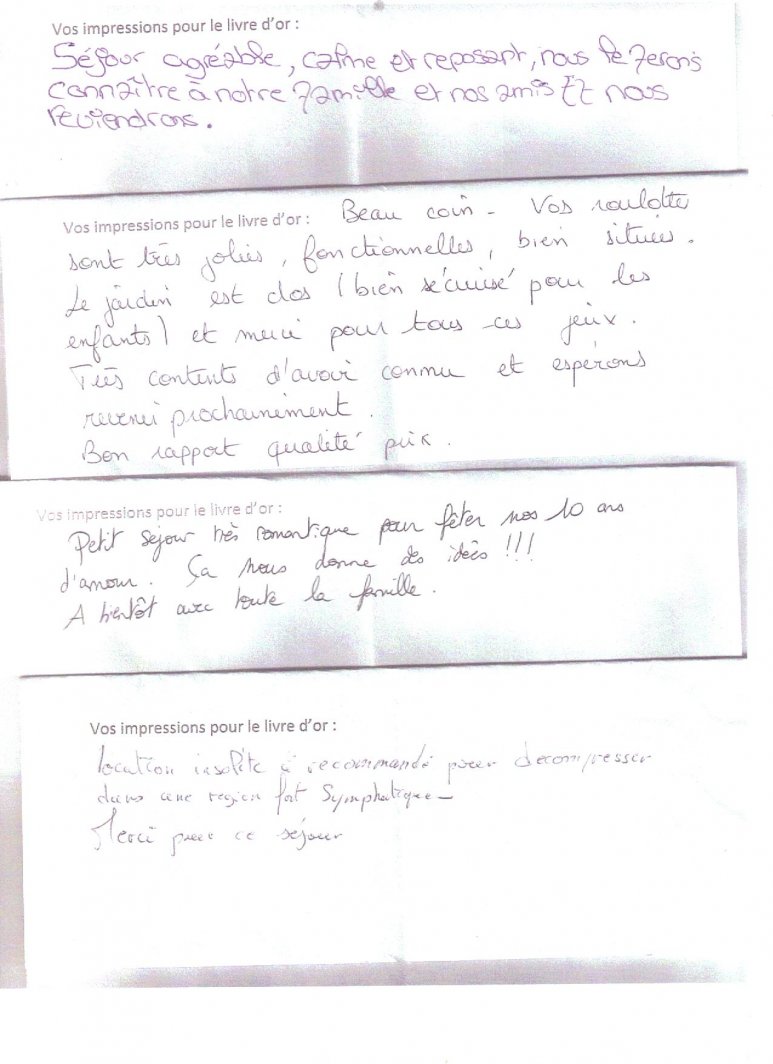 Vos impressions pour le livre d'or :
Séjour agréable, calme et reposant, nous le ferons
connaître à notre famille et nos amis Et nous
reviendrons.
Vos impressions pour le livre d'or : Beau coin - Vos roulotte
sont très jolies, fonctionnelles, bien situées.
Le jardin est clos (bien sécurisé pour les
enfants) et merci pour tous ces jeux.
Très contents d'avoir connu et espérons
revenir prochainement.
Bon rapport qualité prix.
Vos impressions pour le livre d'or :
Petit séjour très romantique pour fêter nos 10 ans
d'amour. Ça nous donne des idées !!!
A bientôt avec toute la famille.
Vos impressions pour le livre d'or :
location insolite à recommandé pour decompresser
dans une region fort Symphatique -
Merci pour ce séjour